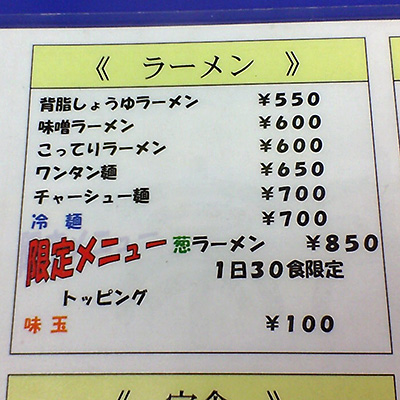 《 ラーメン 》
背脂しょうゆラーメン ¥550
味噌ラーメン ¥600
こってりラーメン ¥600
ワンタン麺 ¥650
チャーシュー麺 ¥700
冷 麺 ¥700
限定メニュー 葱ラーメン ¥850
1日30食限定
トッピング
味 玉 ¥100
《 定食 》